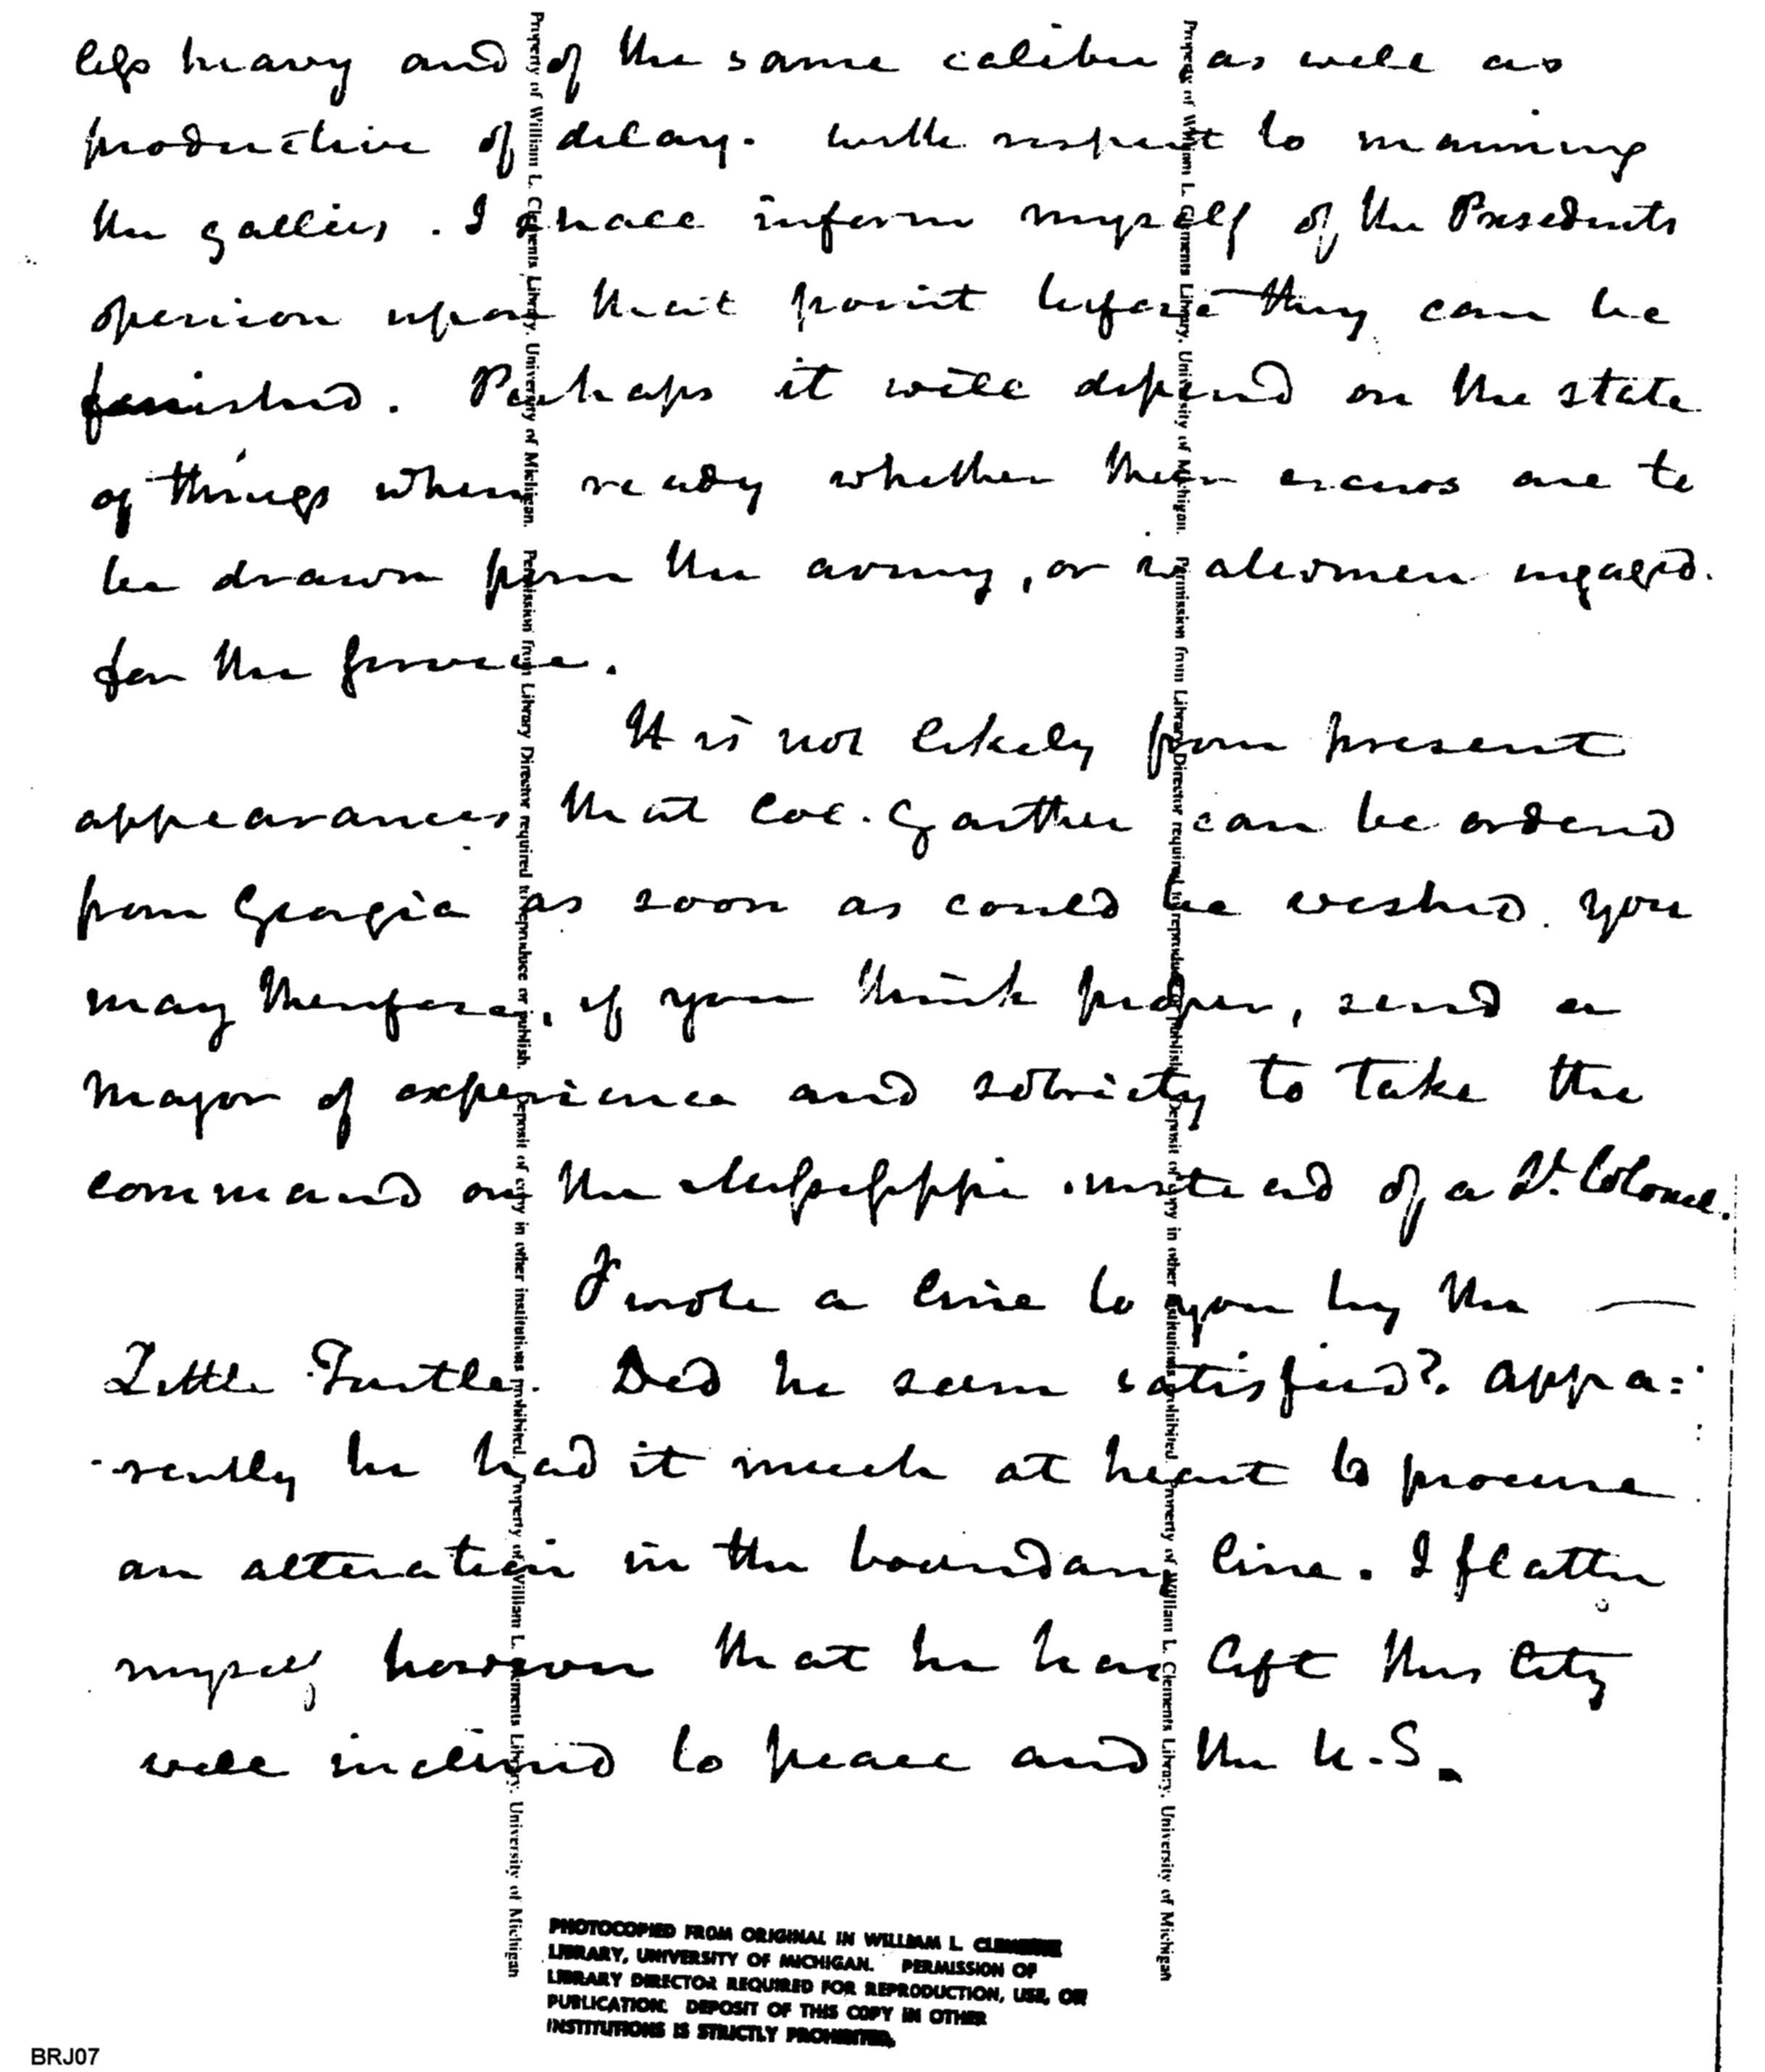 less heavy and of the same calibre as well as
productive of delay. with respect to manning
the gallies. I shall inform myself of the Presedents
openion upon that point before they can be
finished. Perhaps it will depend on the state
of things when ready whether their crews are to
be drawn from the army, or watermen engaged.
for the service.
It is not likely from present
appearances that Col. Gaither can be ordered
from Georgia as soon as could be wished. you
may therefore, if you think proper, send a
major of experience and sobriety to take the
command on the Missisippi instead of a Lt. Colonel.
I wrote a line to you by the —
Little Turtle. Did he seem satisfied? appa=
-rently he had it much at heart to procure
an alteration in the boundary line. I flatter
myself however that he has left this City
well inclined to peace and the U.S.
Property of William L. Clements Library, University of Michigan. Permission from Library Director required to reproduce or publish. Deposit of copy in other institutions prohibited. Property of William L. Clements Library, University of Michigan
Property of William L. Clements Library, University of Michigan. Permission from Library Director required to reproduce or publish. Deposit of copy in other institutions prohibited. Property of William L. Clements Library, University of Michigan
PHOTOCOPIED FROM ORIGINAL IN WILLIAM L. CLEMENTS
LIBRARY, UNIVERSITY OF MICHIGAN. PERMISSION OF
LIBRARY DIRECTOR REQUIRED FOR REPRODUCTION, USE, OR
PUBLICATION. DEPOSIT OF THIS COPY IN OTHER
INSTITUTIONS IS STRICTLY PROHIBITED.
BRJ07